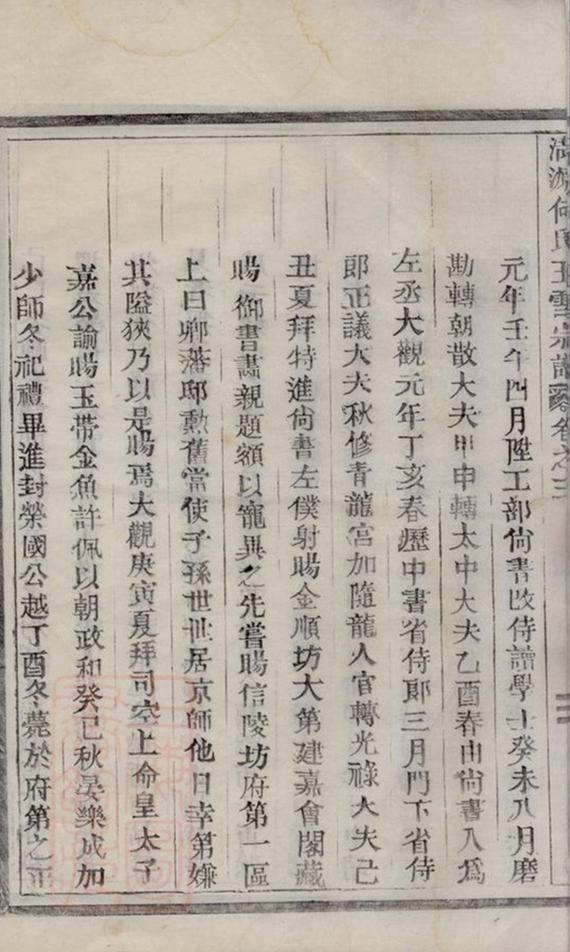 清湖何氏玉雪宗譜卷之三
元年壬午四月陞工部尙書改侍讀學士癸未八月磨
勘轉朝散大夫甲申轉太中大夫乙酉春由尙書入爲
左丞大觀元年丁亥春歷中書省侍郞三月門下省侍
郞正議大夫秋修青龍宮加隨龍人官轉光祿大夫己
丑夏拜特進尙書左僕射賜金順坊大第建嘉會閣藏
賜御書畵親題額以寵異之先嘗賜信陵坊府第一區
上曰卿藩邸勳舊當使子孫世世居京師他日幸第嫌
其隘狹乃以是賜焉大觀庚寅夏拜司空上命皇太子
嘉公諭賜玉帶金魚許佩以朝政和癸巳秋晏樂成加
少師冬祀禮畢進封榮國公越丁酉冬薨於府第之正